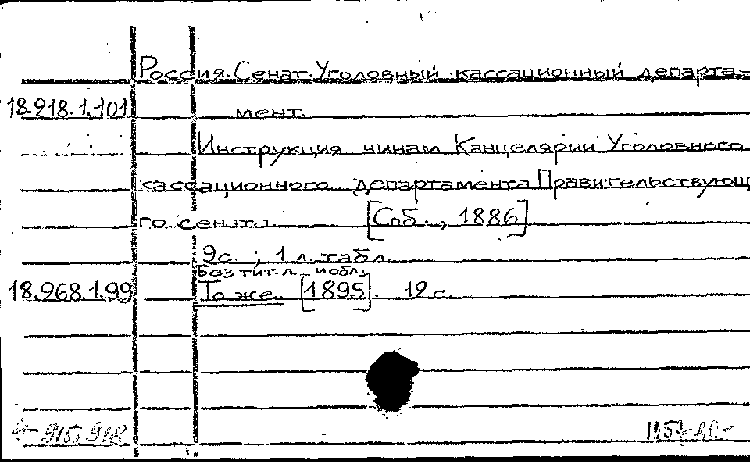 Россия. Сенат. Уголовный кассационный департа-
18.218.1.101 мент.
Инструкция чинам Канцелярии Уголовного
кассационного департамента Правительствующ
го сената [Спб., 1886]
9с.; 1 л. табл.
Без тит. л. и обл.
18.268.1.99 То же. [1895]. 12 с.